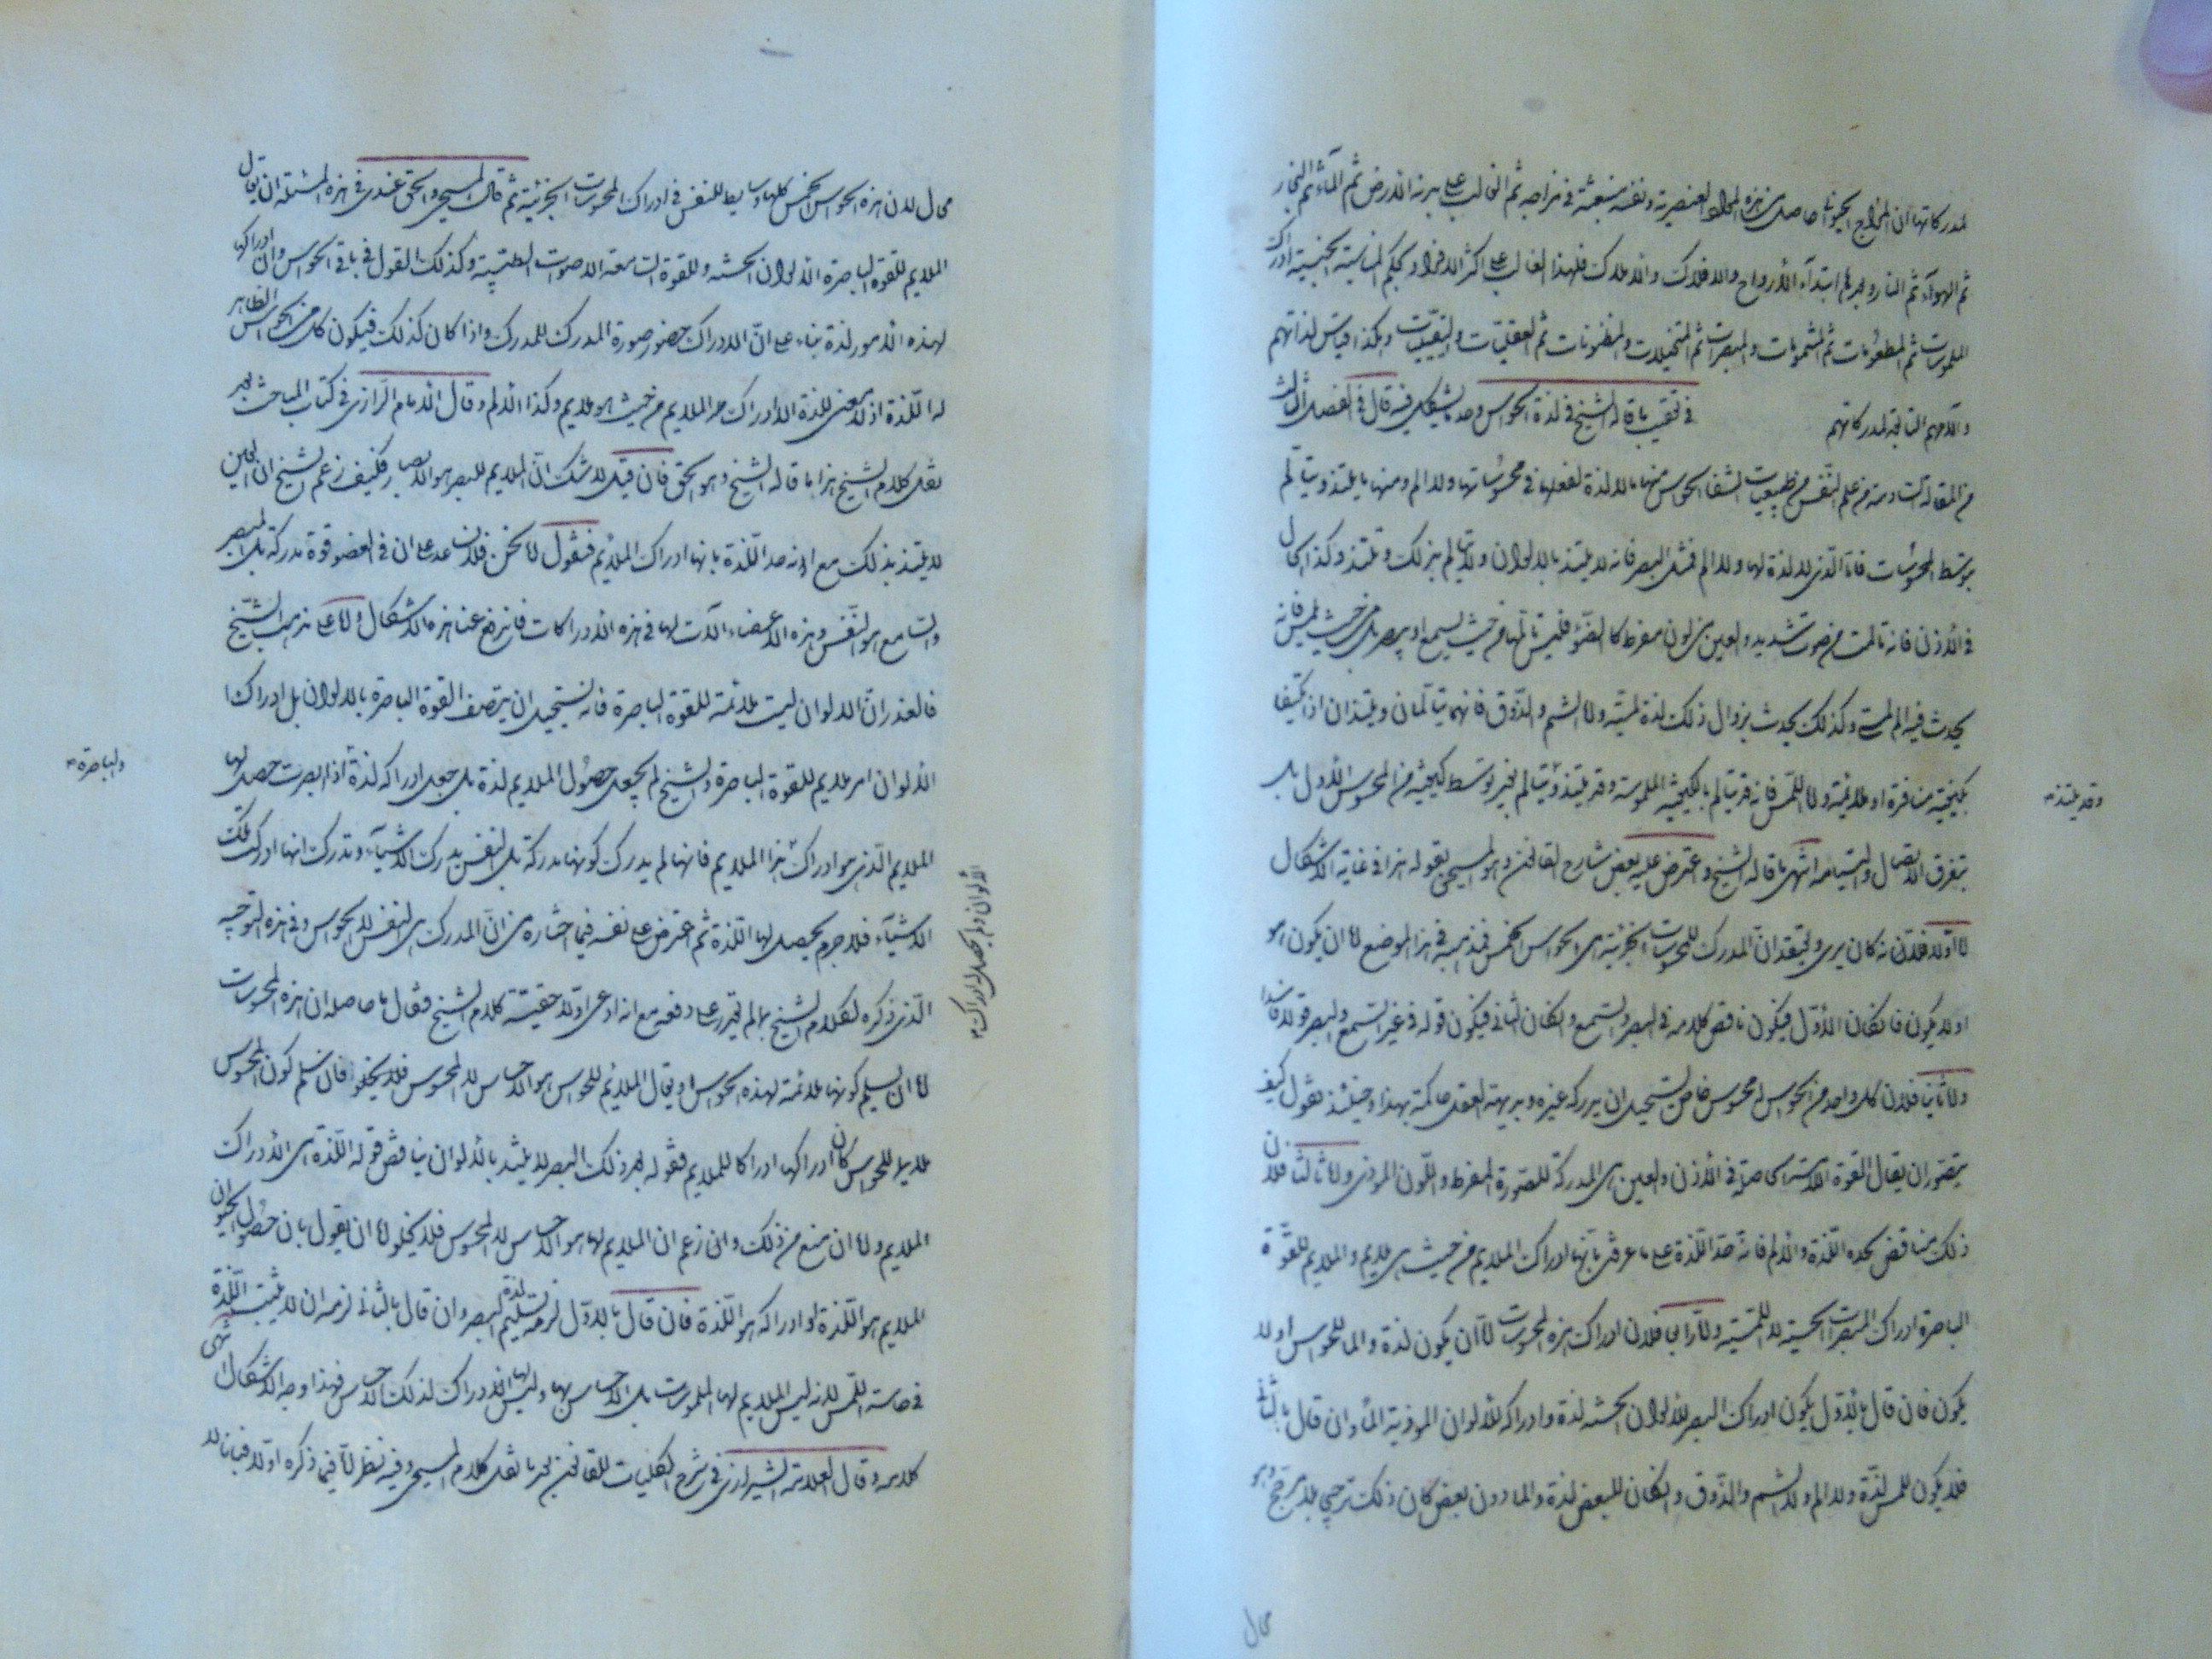 لمدركاتها ان المزاج الحيواني حاصل من هذه المواد العنصرية ونفسه منبعثة في مزاجه ثم الغالب على بدنه الارض ثم الماء ثم البخار
ثم الهواء ثم النار وهلم ابتداء الأرواح والافلاك والاملاك فلهذا الغالب على اكثر الافراد بحكم المناسبة الجنسية ادراك
الملموسات ثم المطعومات ثم المشمومات والمبصرات ثم المتخيلات والمظنونات ثم العقليات واليقينيات وهكذا قياس لذاتهم
وآلامهم التابعة لمدركاتهم في تحقيق ما قاله الشيخ في لذة الحواس وحل ما يشكل فيه قال في الفصل الثالث
من المقالة السادسة من علم النفس من طبيعيات الشفا الحواس منها ما لا لذة لفعلها في محسوساتها ولا الم ومنها ما يلتذ ويتألم
بتوسط المحسوسات فاما التي لا لذة لها ولا الم فمثل البصر فانه لا يلتذ بالالوان ولا يتألم بذلك وتلتذ وكذا الحال
في الأذن فانه تألمت من صوت شديد والعين من لون مفرط كالضوء فليس تألمها من حيث يسمع او يبصر بل من حيث يلمس فانه
يحدث فيه الم لمسي وكذلك يحدث بزوال ذلك لذة لمسية واما الشم والذوق فانهما يتألمان ويلتذان اذا تكيفا
بكيفية منافرة او ملائمة واما اللمس فانه قد يتألم بالكيفية الملموسة وقد يلتذ ويتألم بغير توسط كيفية من المحسوس الأول بل
وقد يلتذ
بتفرق الاتصال والتيامه انتهى ما قاله الشيخ واعترض عليه بعض شارح القانون وهو المسيحي بقوله هذا في غاية الاشكال
اما اولا فلأنه كان يرى ويعتقد ان المدرك للمحسوسات الجزئية هي الحواس الخمس فمذهبه في هذا الموضع اما ان يكون هو
او لا يكون فان كان الأول فيكون ناقض كلامه في البصر والسمع وان كان الثاني فيكون قوله في غير السمع والبصر قولا فاسدا
واما ثانيا فلان كل واحد من الحواس له محسوس خاص يستحيل ان يدركه غيره وبديهة العقل حاكمة بهذا وحينئذ نقول كيف
يتصور ان يقال القوة اللامسة الحاصلة في الأذن والعين هي المدركة للصوت المفرط واللون الموذي واما ثالثا فلان
ذلك مناقض لحده اللذة والألم فانه حد اللذة على ما عرفت بانها ادراك الملايم من حيث هو ملايم والملايم للقوة
الباصرة ادراك المبصرات الحسية لا اللمسية واما رابعا فلان ادراك هذه المحسوسات اما ان يكون لذة والما للحواس او لا
يكون فان قال بالأول يكون ادراك البصر للالوان الحسنة لذة وادراكه للألوان الموذية الما وان قال بالثاني
فلا يكون للمس لذة ولا الم ولا الشم والذوق وان كان للبعض لذة والما دون بعض كان ذلك ترجيحا بلا مرجح وهو
محال
محال لان هذه الحواس الخمس كلها وسايط للنفس في ادراك المحسوسات الجزئية ثم قال المسيحي والحق عندي في هذه المسئلة ان يقال
الملايم للقوة الباصرة الالوان الحسنة وللقوة السامعة الاصوات الطيبة وكذلك القول في باقي الحواس وان ادراكها
لهذه الأمور لذة بناء على انّ الادراك حضور صورة المدرك للمدرك واذا كان كذلك فيكون كل من الحواس الظاهر
له اللذة اذ لا معنى للذة الا ادراك الملايم من حيث هو ملايم وكذا الألم وقال الامام الرازي في كتاب المباحث بعد
نقل كلام الشيخ هذا ما قاله الشيخ وهو الحق فان قيل لا شك انّ الملايم للبصر هو الابصار فكيف زعم الشيخ ان العين
لا يلتذ بذلك مع انه حد اللذة بانها ادراك الملائم فنقول اما نحن فلا نساعد على ان في العضو قوة مدركة بل المبصر
والسامع هو النفس وهذه الاعضاء آلات لها في هذه الأدراكات فاندفع عنا هذه الاشكال واما على مذهب الشيخ
فالعذر انّ الالوان ليست ملائمة للقوة الباصرة فانه يستحيل ان يتصف القوة الباصرة بالالوان بل ادراك
الألوان امر ملايم للقوة الباصرة والشيخ لم يجعل حصول الملايم لذة بل جعل ادراكه لذة اذا ابصرت حصل لها
والباصرة
الملايم الذي هو ادراك هذا الملايم فانها لم يدرك كونها مدركة بل النفس يدرك الاشياء وتدرك انها ادركت تلك
الالوان ولم يحصل ادراك
الاشياء فلا جرم يحصل لها اللذة ثم اعترض على نفسه فيما اختاره من انّ المدرك هي النفس لا الحواس وفي هذه التوجيه
الذي ذكره لكلام الشيخ بما لم يقدر على دفعه مع انه ادعى اولا حقيّة كلام الشيخ فقال ما حاصله ان هذه المحسوسات
اما ان يسلم كونها ملائمة لهذه الحواس او يقال الملايم للحواس هو الاحساس لا المحسوس فلا يخلو فان سلم كون المحسوس
ملايما للحواس كان ادراكها ادراكا للملايم فقوله بعد ذلك البصر لا يلتذ بالألوان يناقض قوله اللذة هي الأدراك
الملايم واما ان منع من ذلك وان زعم ان الملايم لها هو الاحساس لا المحسوس فلا يخلو اما ان يقول بان حصول الحيوان
الملايم هو اللذة او ادراكه هو اللذة فان قال بالاول لزمه تسليم لذة البصر وان قال بالثاني لزمه ان لا يثبت اللذة
في حاسة اللمس لانه ليس الملايم لها الملموسات بل الاحساس بها وليس لها الادراك لذلك الاحساس فهذا وجه الاشكال انتهى
كلامه وقال العلامة الشيرازي في شرح الكليات للقانون بعد ما نقل كلام المسيحي وفيه نظر اما فيما ذكره اولا فبان لا